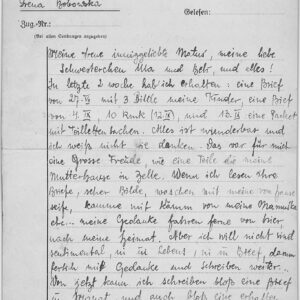 Irena Bobowska
Gelesen:
Zug.-Nr.:
(Bei allen Sendungen anzugeben)
Meine treue innniggeliebte Matur, meine liebe
Schwesterchen Ula und Beti, und alles!
In letzte 2 woche hab ich erhalten: eine Brief
von 27.VI mit 3 Bilde meine Kinder, eine Brief
von 4.IX, 10 Rmk (12.IX) und 12.IX eine Packet
mit Toilettensachen. Alles ist wunderbar und
ich weiß nicht wie danken. Das war für mich
eine Grosse Freude, wie eine Teile die meine
Mutterhause in Zelle. Wenn ich lesen ihre
Briefe, seher Bilde, waschen mit meine von hause
seife, kamme mit Kamm von meine Mamuśka
etc... meine Gedanke fahren ferne von hier,
nach meine Heimat. Aber ich will nicht
sentimental, in u. Leben, in Brief, darum
fertich mit Gedanke und schreiben weiter...
Von jetzt kann ich schreiben bloß eine Brief
in Monat und auch bloß eine erhalten